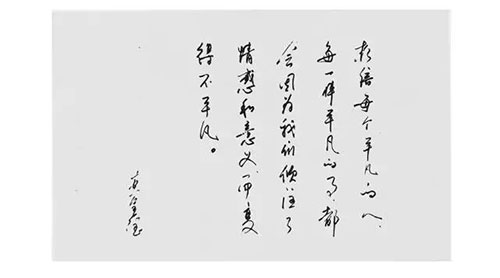 相信每个平凡的人
每一件平凡的事,都
会因为我们倾注了
情感和意义而变
得不平凡。